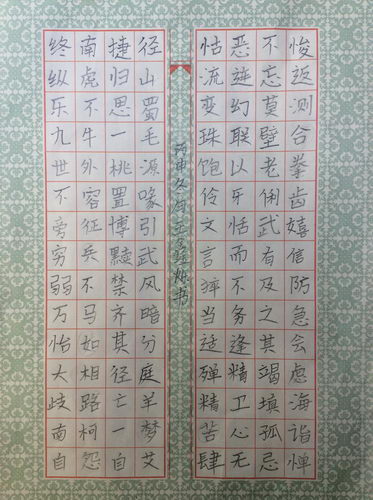 终南捷径
纵虎归山
乐不思蜀
九牛一毛
世外桃源
不容置喙
旁征博引
穷兵黩武
弱不禁风
万马齐暗
恰如其分
大相径庭
歧路亡羊
南柯一梦
自怨自艾
丙申冬月王书
怙恶不悛
流涟忘返
变幻莫测
珠联璧合
饱以老拳
伶牙俐齿
文恬武嬉
言而有信
猝不及防
当务之急
适逢其会
殚精竭虑
精卫填海
苦心孤诣
肆无忌惮